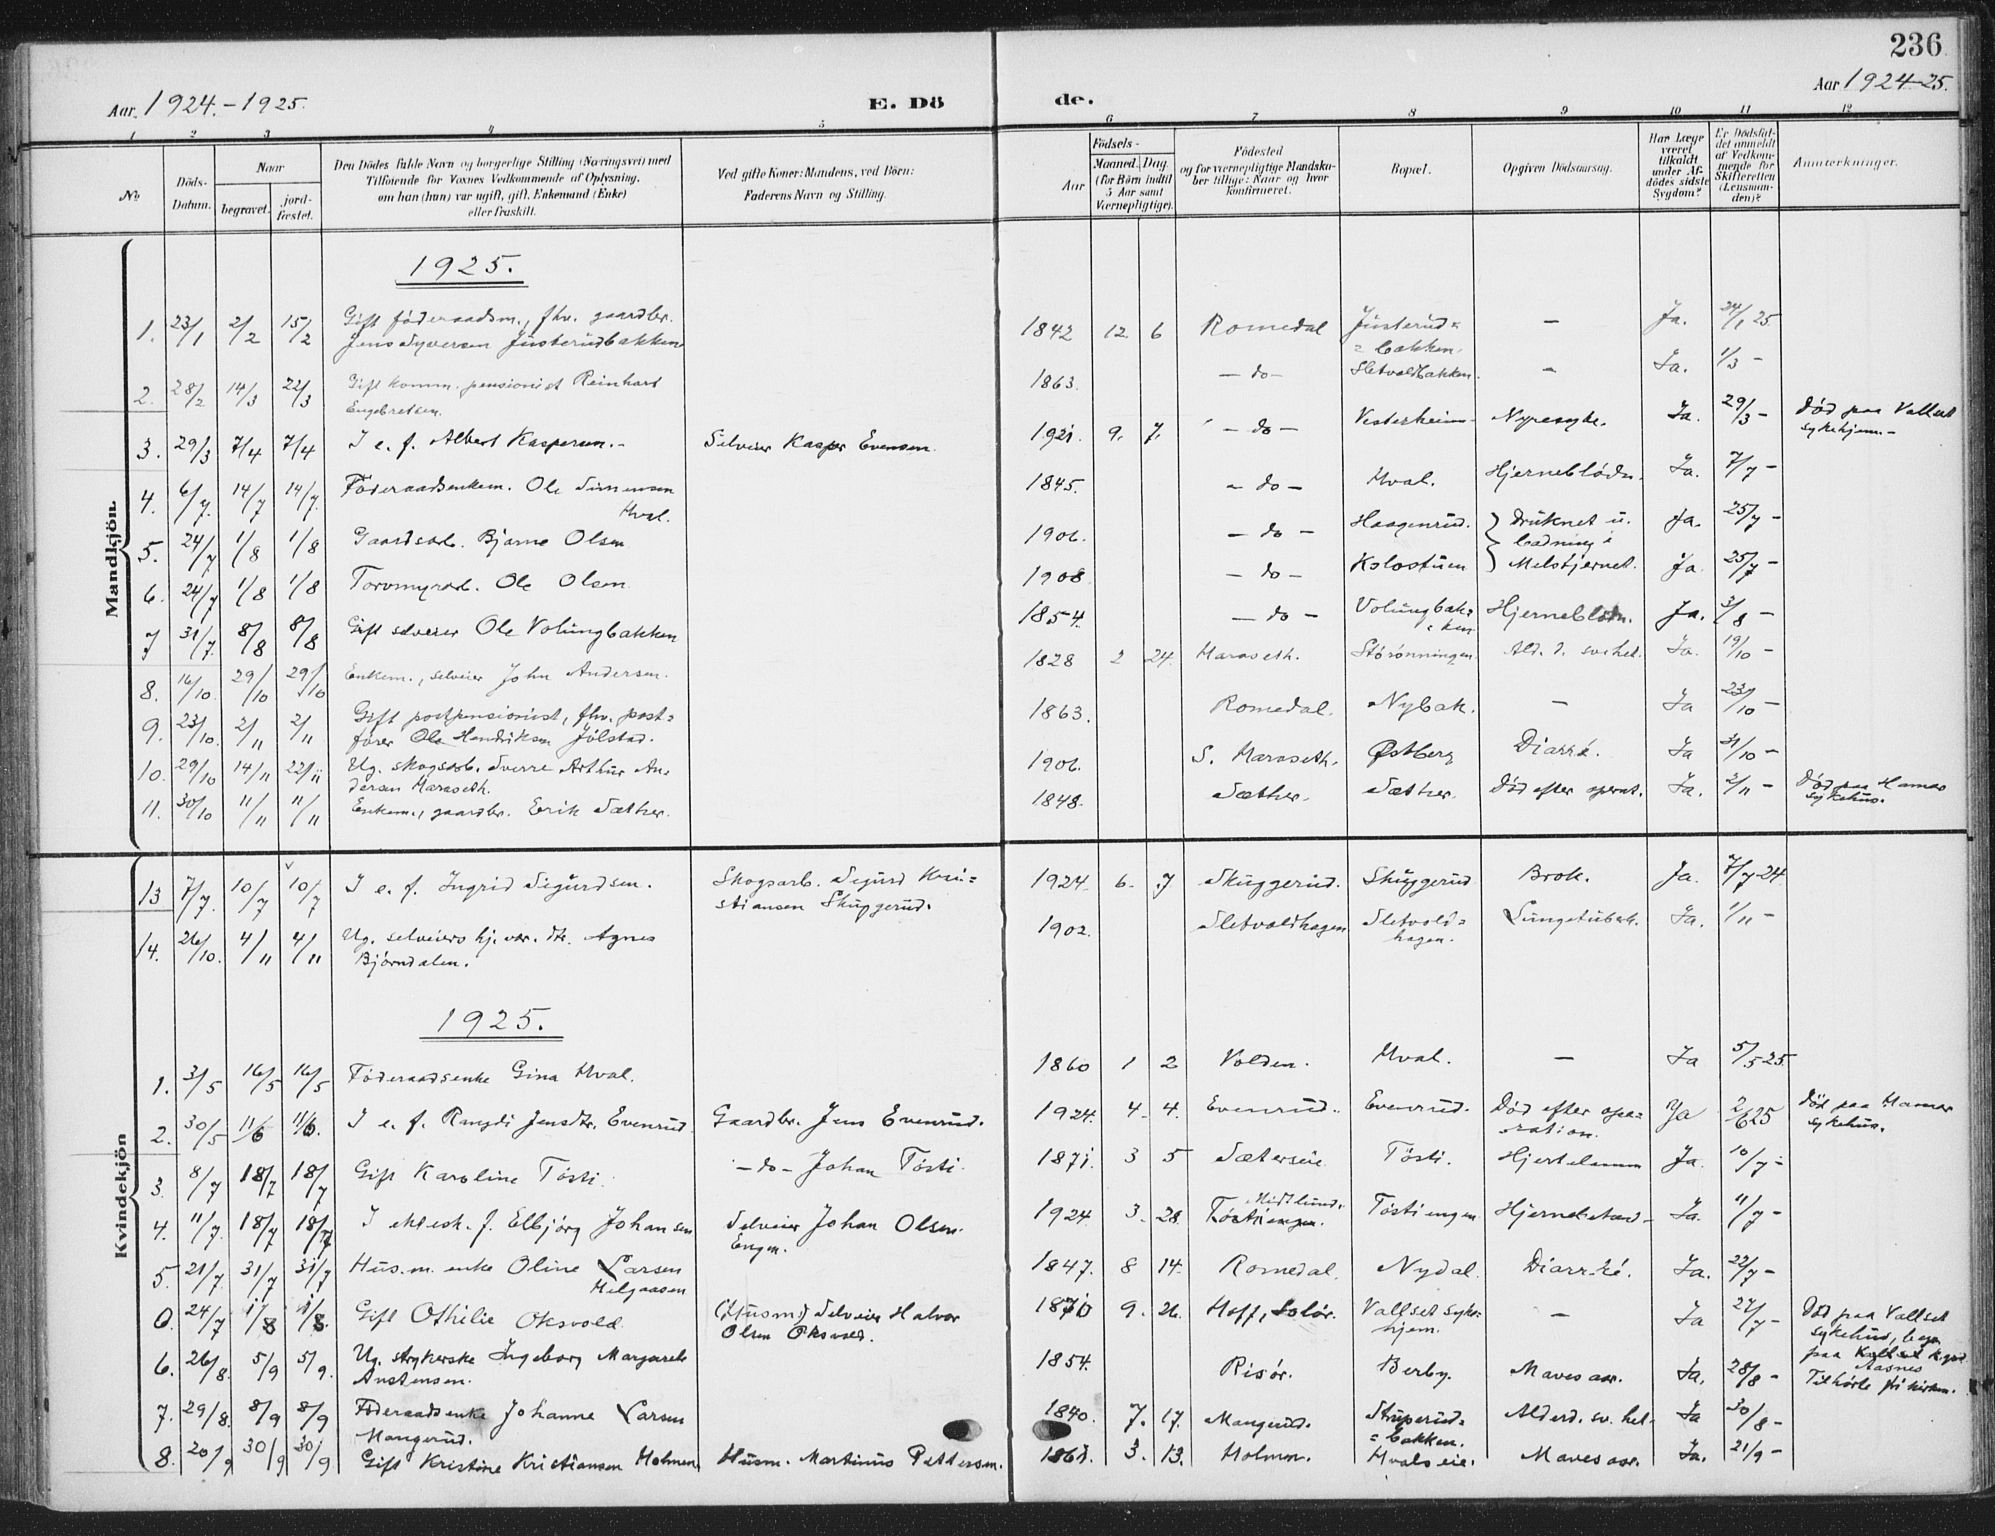 236
Aar 1924.-1925.
E. Dö
de.
Aar 1924-25.
1 2 3 4 5 6 7 8 9 10 11 12
No
Döds-
Datum.
Naar
begravet.
jord-
fæstet.
Den Dödes fulde Navn og borgerlige Stilling (Næringsvei) med
Tilföiende for Voxnes Vedkommende af Oplysning,
om han (hun) var ugift, gift, Enkemand (Enke)
eller fraskilt.
Ved gifte Koner: Mandens, ved Börn:
Faderens Navn og Stilling.
Födsels-
Aar
Maaned. Dag.
(for Börn indtil
5 Aar samt
Værnepligtige).
Födested
og for værnepligtige Mandska-
ber tillige: Naar og hvor
Konfirmeret.
Bopæl.
Opgiven Dödsaarsag.
Har Læge
været
tilkaldt
under Af-
dödes sidste
Sygdom?
Er Dödsfal-
det anmeldt
af Vedkom-
mende for
Skifteretten
(Lensman-
den)?
Anmærkninger.
Mandkjön.
1925.
1. 23/1 2/2 15/2 Gift föderaadsm., fhv. gaardbr.
Jens Syversen Justerudbakken 1842 12. 6 Romedal Justerud=
= bakken. — Ja. 24/1 25.
2. 28/2 14/3 22/3 Gift komm. pensionist Reinhart
Engebretsen. 1863. — do — Sletvoldbakken. — Ja. 1/3 —
3. 29/3 7/4 7/4 I e. f. Albert Kaspersen.- Selveier Kasper Evensen. 1921. 9. 7. — do — Vesterheim Nyresyke. Ja. 29/3 — Död paa Vallset
sykehjem.-
4. 6/7. 14/7 14/7. Föderaadsenkem. Ole Simensen
Hval. 1845. — do — Hval. Hjerneblödn. Ja. 7/7 —
5. 24/7 1/8 1/8 Gaardsarb. Bjarne Olsen 1906. — do — Haagenrud. } Druknet u.
badning i Ja. 25/7 —
6. 24/7 1/8 1/8 Torvmyrarb. Ole Olsen 1908 — do — Kolostuen Melstjernet. Ja. 25/7 —
7 31/7. 8/8 8/8 Gift selveier Ole Volungbakken 1854. — do — Volungbak=
= ken Hjerneblödn. Ja. 3/8 —
8. 16/10 29/10 29/10 Enkem., selveier John Andersen. 1828 2 24. Maraseth. Störönningen Ald. d. svækhet. Ja. 19/10 —
9. 23/10. 2/11 2/11 Gift postpensionist, fhv. post=
förer Ole Hendriksen Jölstad. 1863. Romedal. Nybak. — Ja 23/10 —
10. 29/10 14/11 22/11 Ug. skogsarb. Sverre Arthur An=
dersen Maraseth. 1906. S. Maraseth. Østberg Diarré. Ja 31/10 —
11. 30/10 11/11 11/11 Enkem., gaardbr. Erik Sæther. 1848. Sæther. Sæther. Död efter operat. Ja. 2/11 — Död paa Hamar
sykehus.
Kvindekjön
13 7/7. 10/7 10/7 I e. f. Ingrid Sigurdsen. Skogsarb. Sigurd Kri=
stiansen Skuggerud. 1924. 6. 7 Skuggerud. Skuggerud Brok. Ja. 7/7-24.
14. 26/10. 4/11 4/11 Ug. selveiers hj.vær. dtr. Agnes
Björndalen. 1902. Sletvoldhagen Sletvold=
hagen. Lungetuberk. Ja. 1/11 —
1925.
1. 3/5 16/5 16/5 Föderaadsenke Gina Hval. 1860 1 2 Volden. Hval. — Ja 5/5 25.
2. 30/5 11/6 11/6. I e. f. Rangdi Jensdtr. Evenrud Gaardbr. Jens Evenrud. 1924. 4. 4. Evenrud. Evenrud. Död efter ope=
ration. Ja 2/6 25 Död paa Hamar
sykehus.
3. 8/7 18/7 18/7 Gift Karoline Tösti. — do — Johan Tösti. 1871. 3 5 Sæterseie Tösti. Hjertelamm Ja. 10/7 —
4. 11/7. 18/7 18/7 I ektesk. f. Elbjörg Johansen Selveier Johan Olsen
Engen. 1924. 3. 28. Midtlund.
Töstiengen. Töstiengen Hjernebetænd- Ja. 11/7 —
5. 21/7. 31/7 31/7 Hus.m. enke Oline Larsen
Helgaasen 1847. 8 14. Romedal. Nydal. Diarrhé. Ja. 22/7 —
0. 24/7 1/8 1/8. Gift Othilie Oksvold (Husm.) Selveier Halvor
Olsen Oksvold. 1870 9. 26. Hoff, Solör. Vallset syke-
hjem. — Ja 27/7 — Död paa Vallset
sykehus, begr.
paa
Aasnes
6. 26/8. 5/9 5/9. Ug. strykerske Ingeborg Margarete
Austensen. 1854. Risör. Berby. Mavesaar. Ja. 28/8 — Tilhörte frikirken.
7. 29/8. 8/9 8/9 Föderaadsenke Johanne Larsen
Mangerud. 1840. 7. 17. Mangerud. Struperud=
= bakken. Alderd. sv. het. Ja 30/8 —
8. 20/9 30/9 30/9 Gift Kristine Kristiansen Holmen Husm. Martinus Pettersen. 1861. 3. 13. Holmen. Hvalseie. Mavesaar. Ja. 21/9 —